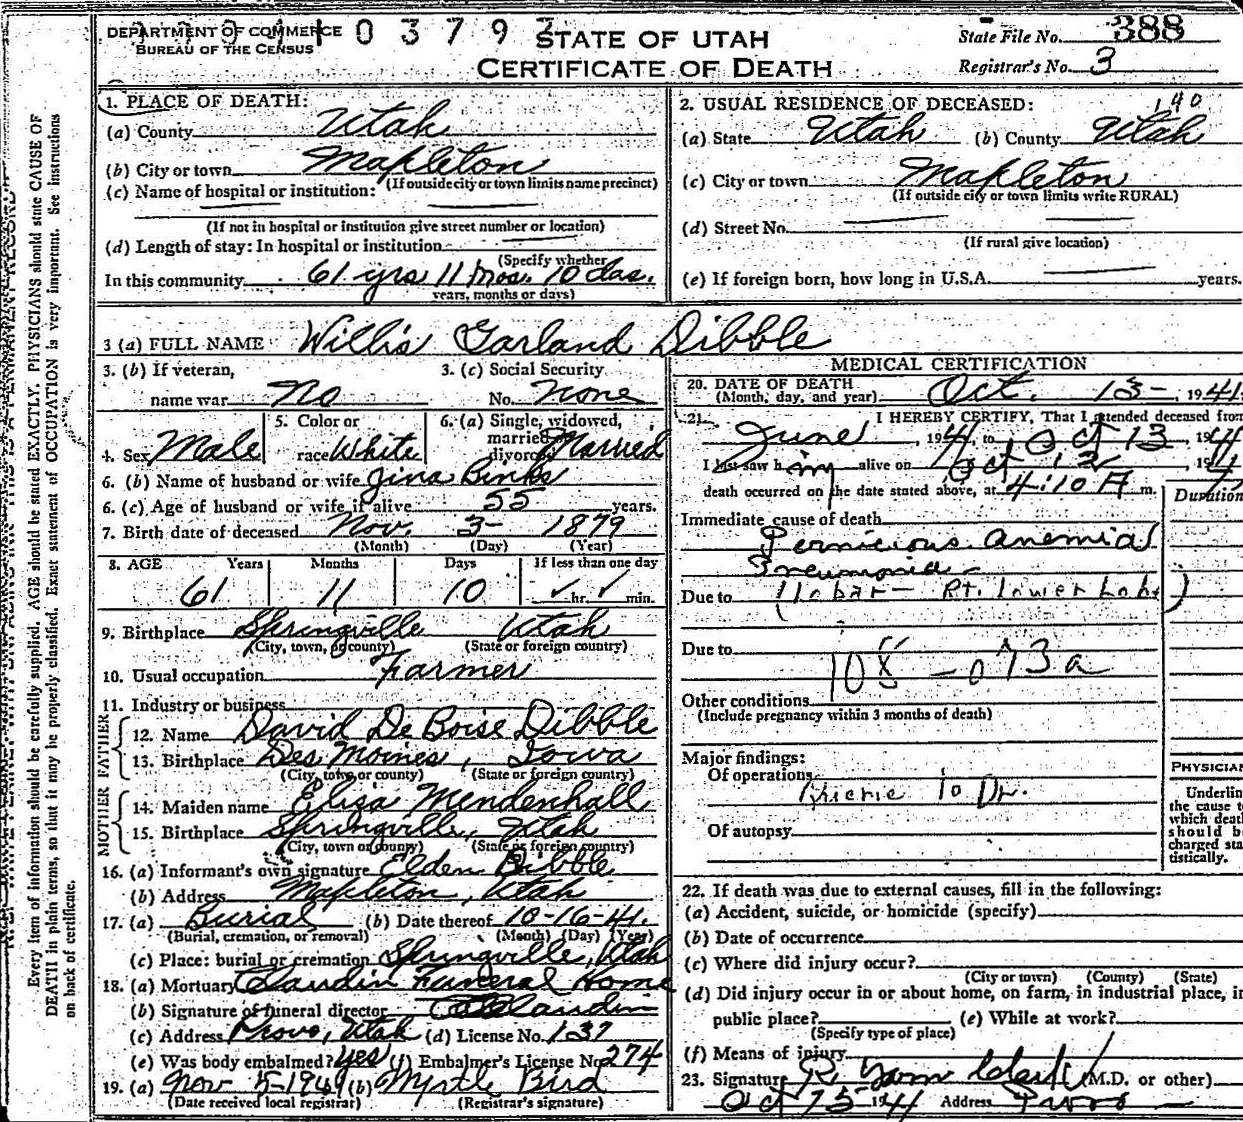 DEPARTMENT OF COMMERCE
BUREAU OF THE CENSUS
03792
STATE OF UTAH
CERTIFICATE OF DEATH
State File No. 388
Registrar's No. 3
Every item of information should be carefully supplied. AGE should be stated EXACTLY. PHYSICIANS should state CAUSE OF
DEATH in plain terms, so that it may be properly classified. Exact statement of OCCUPATION is very important. See instructions
on back of certificate.
1. PLACE OF DEATH:
(a) County Utah
(b) City or town Mapleton
(If outside city or town limits name precinct)
(c) Name of hospital or institution:
(If not in hospital or institution give street number or location)
(d) Length of stay: In hospital or institution
(Specify whether
In this community 61 yrs 11 mos. 10 das.
years, months or days)
2. USUAL RESIDENCE OF DECEASED:
140
(a) State Utah (b) County Utah
(c) City or town Mapleton
(If outside city or town limits write RURAL)
(d) Street No.
(If rural give location)
(e) If foreign born, how long in U.S.A. years.
3 (a) FULL NAME Willis Garland Dibble
3. (b) If veteran,
name war No
3. (c) Social Security
No. None
4. Sex Male
5. Color or
race White
6. (a) Single, widowed,
married
divorced Married
6. (b) Name of husband or wife Jina Binks
6. (c) Age of husband or wife if alive 55 years.
7. Birth date of deceased Nov. 3- 1879
(Month) (Day) (Year)
8. AGE Years Months Days If less than one day
61 11 10 hr. min.
9. Birthplace Springville Utah
(City, town, or county) (State or foreign country)
10. Usual occupation Farmer
11. Industry or business
FATHER
12. Name David De Boise Dibble
13. Birthplace Des Moines, Iowa
(City, town or county) (State or foreign country)
MOTHER
14. Maiden name Eliza Mendenhall
15. Birthplace Springville, Utah
(City, town or county) (State or foreign country)
16. (a) Informant's own signature Elden Dibble
(b) Address Mapleton, Utah
17. (a) Burial (b) Date thereof 10-16-41.
(Burial, cremation, or removal) (Month) (Day) (Year)
(c) Place: burial or cremation Springville, Utah
18. (a) Mortuary Claudin Funeral Home
(b) Signature of funeral director Claudin
(c) Address Provo, Utah (d) License No. 137
(e) Was body embalmed? yes (f) Embalmer's License No. 274
19. (a) Nov 5-1941 (b) Myrtle Bird
(Date received local registrar) (Registrar's signature)
MEDICAL CERTIFICATION
20. DATE OF DEATH
(Month, day, and year) Oct. 13-, 1941.
21. I HEREBY CERTIFY, That I attended deceased from
June, 1941, to Oct 13, 1941
I last saw him alive on Oct 12, 1941
death occurred on the date stated above, at 4:10 A m.
Duration
Immediate cause of death
Pernicious anemia
Pneumonia
Due to (lobar- Rt. lower Lobe)
Due to
108 - 073a
Other conditions
(Include pregnancy within 3 months of death)
Major findings:
Of operations
to Dr.
Of autopsy
PHYSICIAN
Underlin
the cause to
which deat
should b
charged sta
tistically.
22. If death was due to external causes, fill in the following:
(a) Accident, suicide, or homicide (specify)
(b) Date of occurrence
(c) Where did injury occur?
(City or town) (County) (State)
(d) Did injury occur in or about home, on farm, in industrial place, in
public place? (e) While at work?
(Specify type of place)
(f) Means of injury
23. Signature R. Clark (M.D. or other)
Oct 15 1941 Address Provo